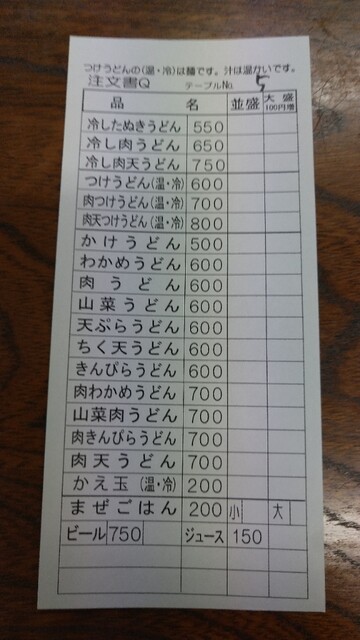 つけうどんの(温・冷)は麺です。汁は温かいです。
注文書Q テーブルNo. 5
品 名 並盛 大盛 100円増
冷したぬきうどん 550
冷し肉うどん 650
冷し肉天うどん 750
つけうどん(温・冷) 600
肉つけうどん(温・冷) 700
肉天つけうどん(温・冷) 800
かけうどん 500
わかめうどん 600
肉うどん 600
山菜うどん 600
天ぷらうどん 600
ちく天うどん 600
きんぴらうどん 600
肉わかめうどん 700
山菜肉うどん 700
肉きんぴらうどん 700
肉天うどん 700
かえ玉(温・冷) 200
まぜごはん 200 小 大
ビール 750 ジュース 150